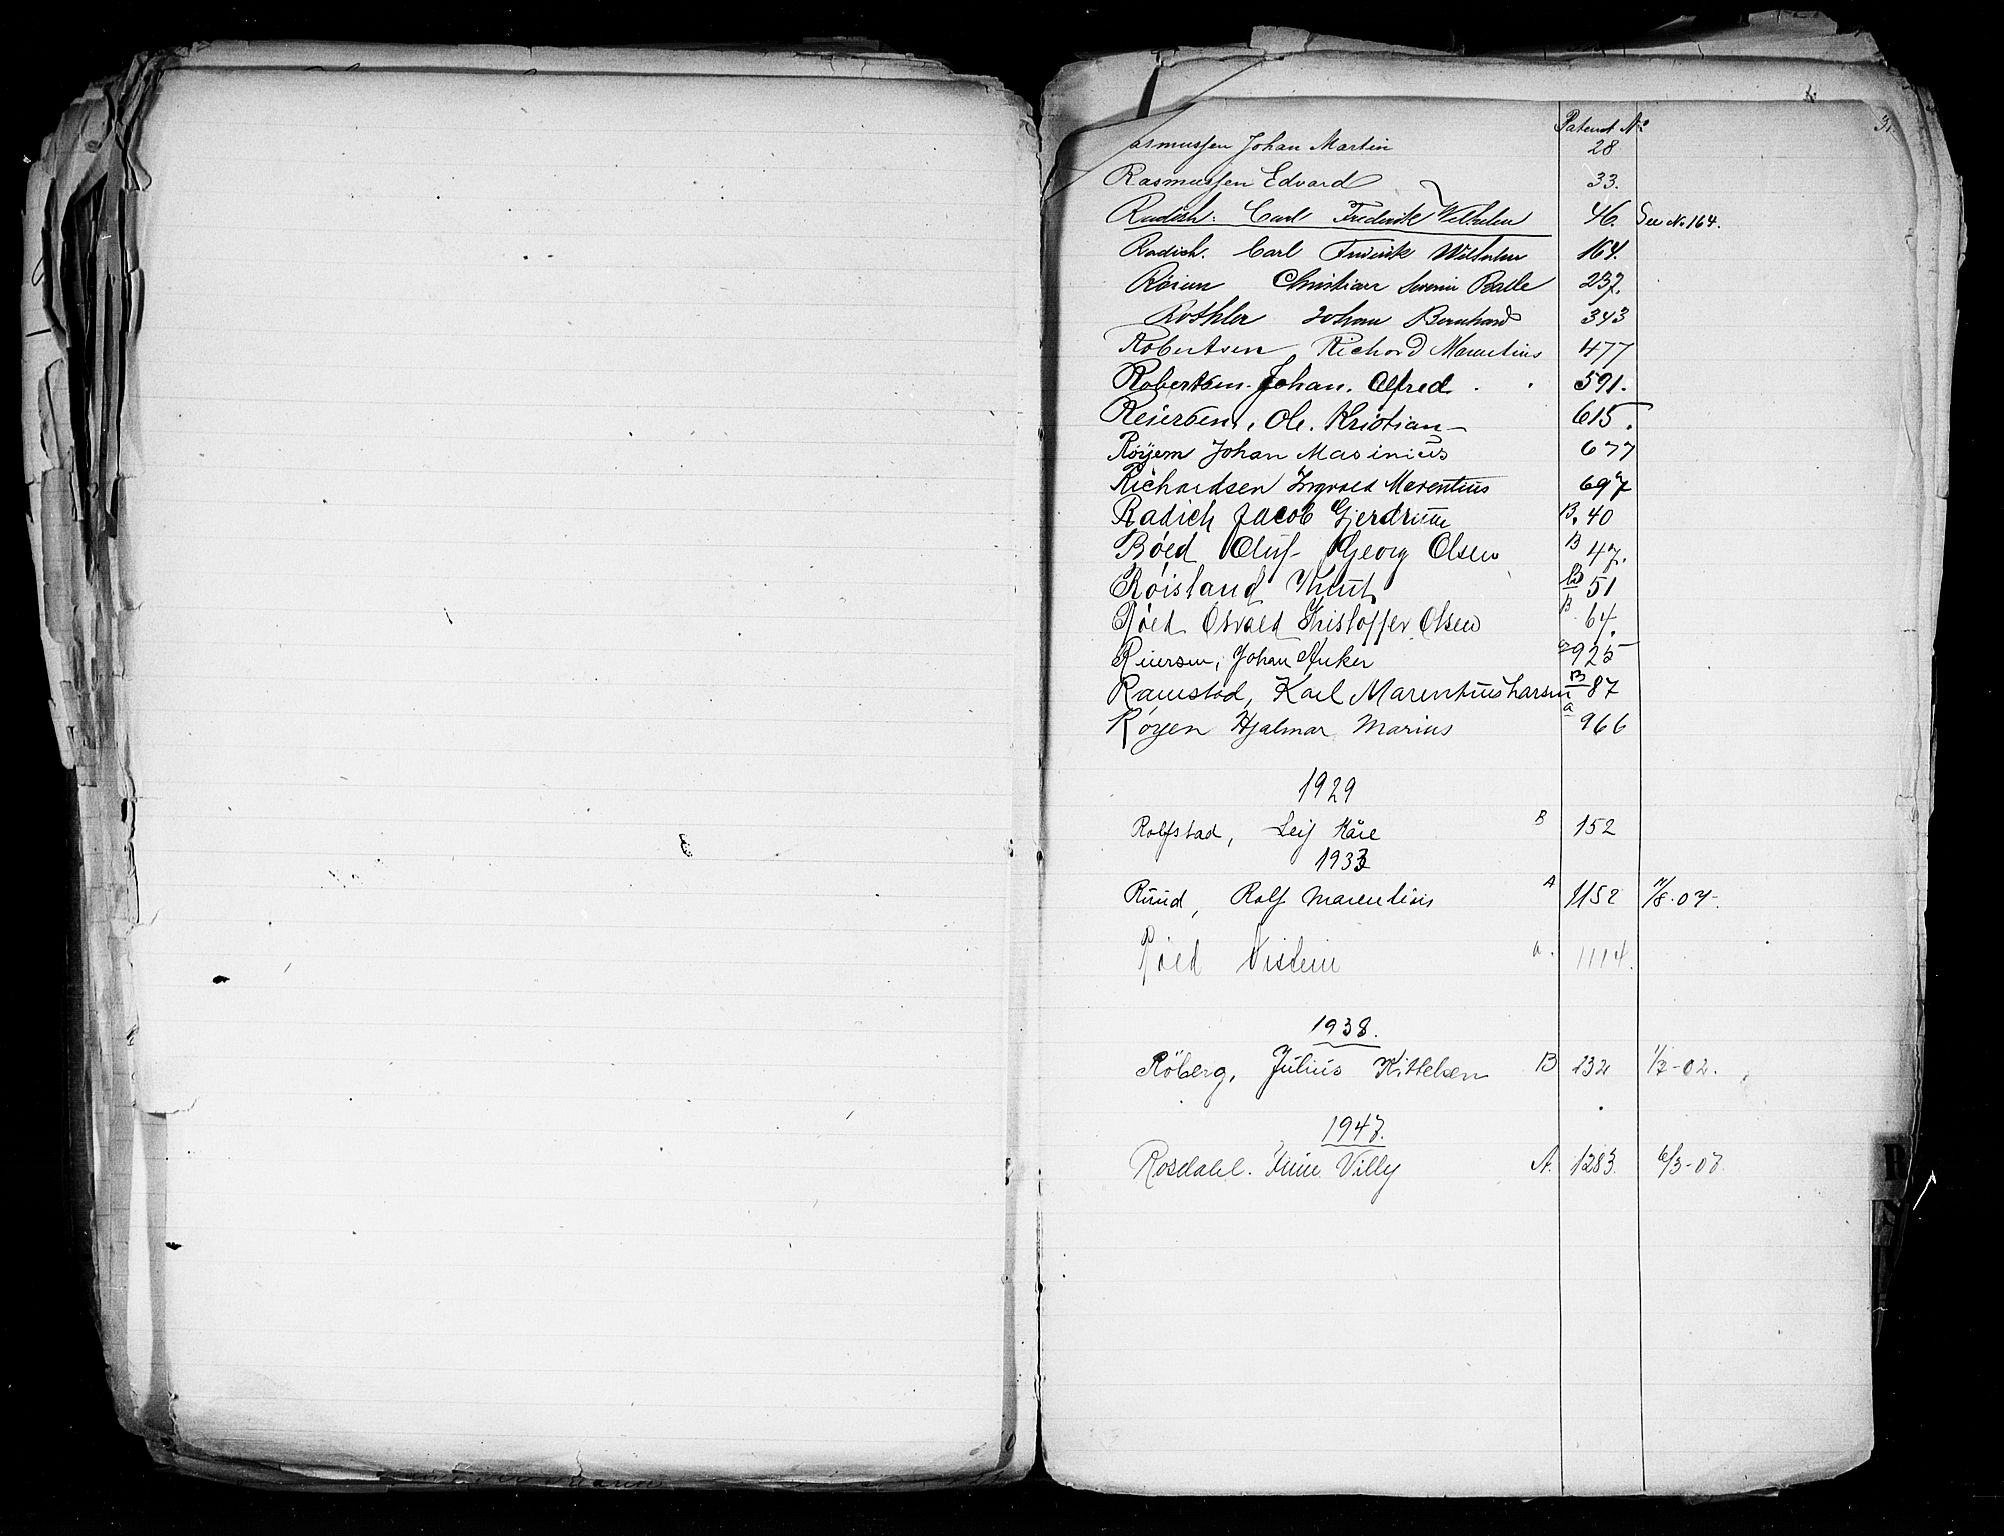 Patent No 31.
asmussen Johan Martin 28
Rasmussen Edvard 33.
Radich. Carl Frederik Wilhelm 46. See No 164.
Radich. Carl Frederik Wilhelm 164.
Røien Christian Severin Balle 237.
Rothler Johan Bernhard 343
Robertsen Richard Marentius 477
Robertsen. Johan. Alfred. 591.
Reiersen, Ole. Kristian 615.
Røyem Johan Masinius 677
Richardsen Ingvald Marentius 697
Radich Jacob Gjerdrum B. 40
Røed Oluf Georg Olsen B 47.
Røisland Knut B 51
Røed Osvald Kristoffer Olsen B 64.
Reiersen, Johan Anker a 925
Ramstad, Karl Marentius Larsen B 87
Røyen Hjalmar Marius a 966
1929
Rolfstad, Leif Kåre B 152
1933
Ruud, Rolf Marentius A 1152 11/8-07.
Røed Øistein a. 1114.
1938.
Röberg, Julius Kittelsen B 232 1/2-02.
1947.
Rosdahl. Finn Villy A. 1283. 6/3-07.
R